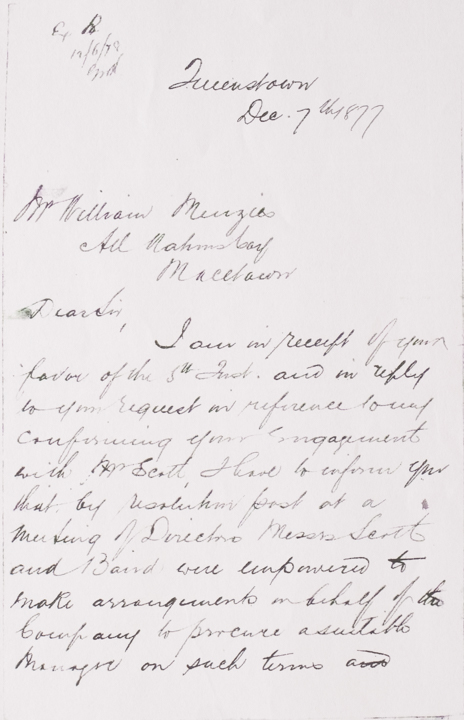 Ex. B
12/6/78
Queenstown
Dec. 7th 1877
Mr William Menzies
All Nations
Macetown
Dear Sir,
I am in receipt of your
favor of the 5th Inst. and in reply
to your request in reference to my
confirming your Engagement
with Mr Scott, I have to inform you
that by resolution past at a
meeting of Directors Messrs Scott
and Baird were empowered to
make arrangements on behalf of the
Company to procure a suitable
Manager on such terms and